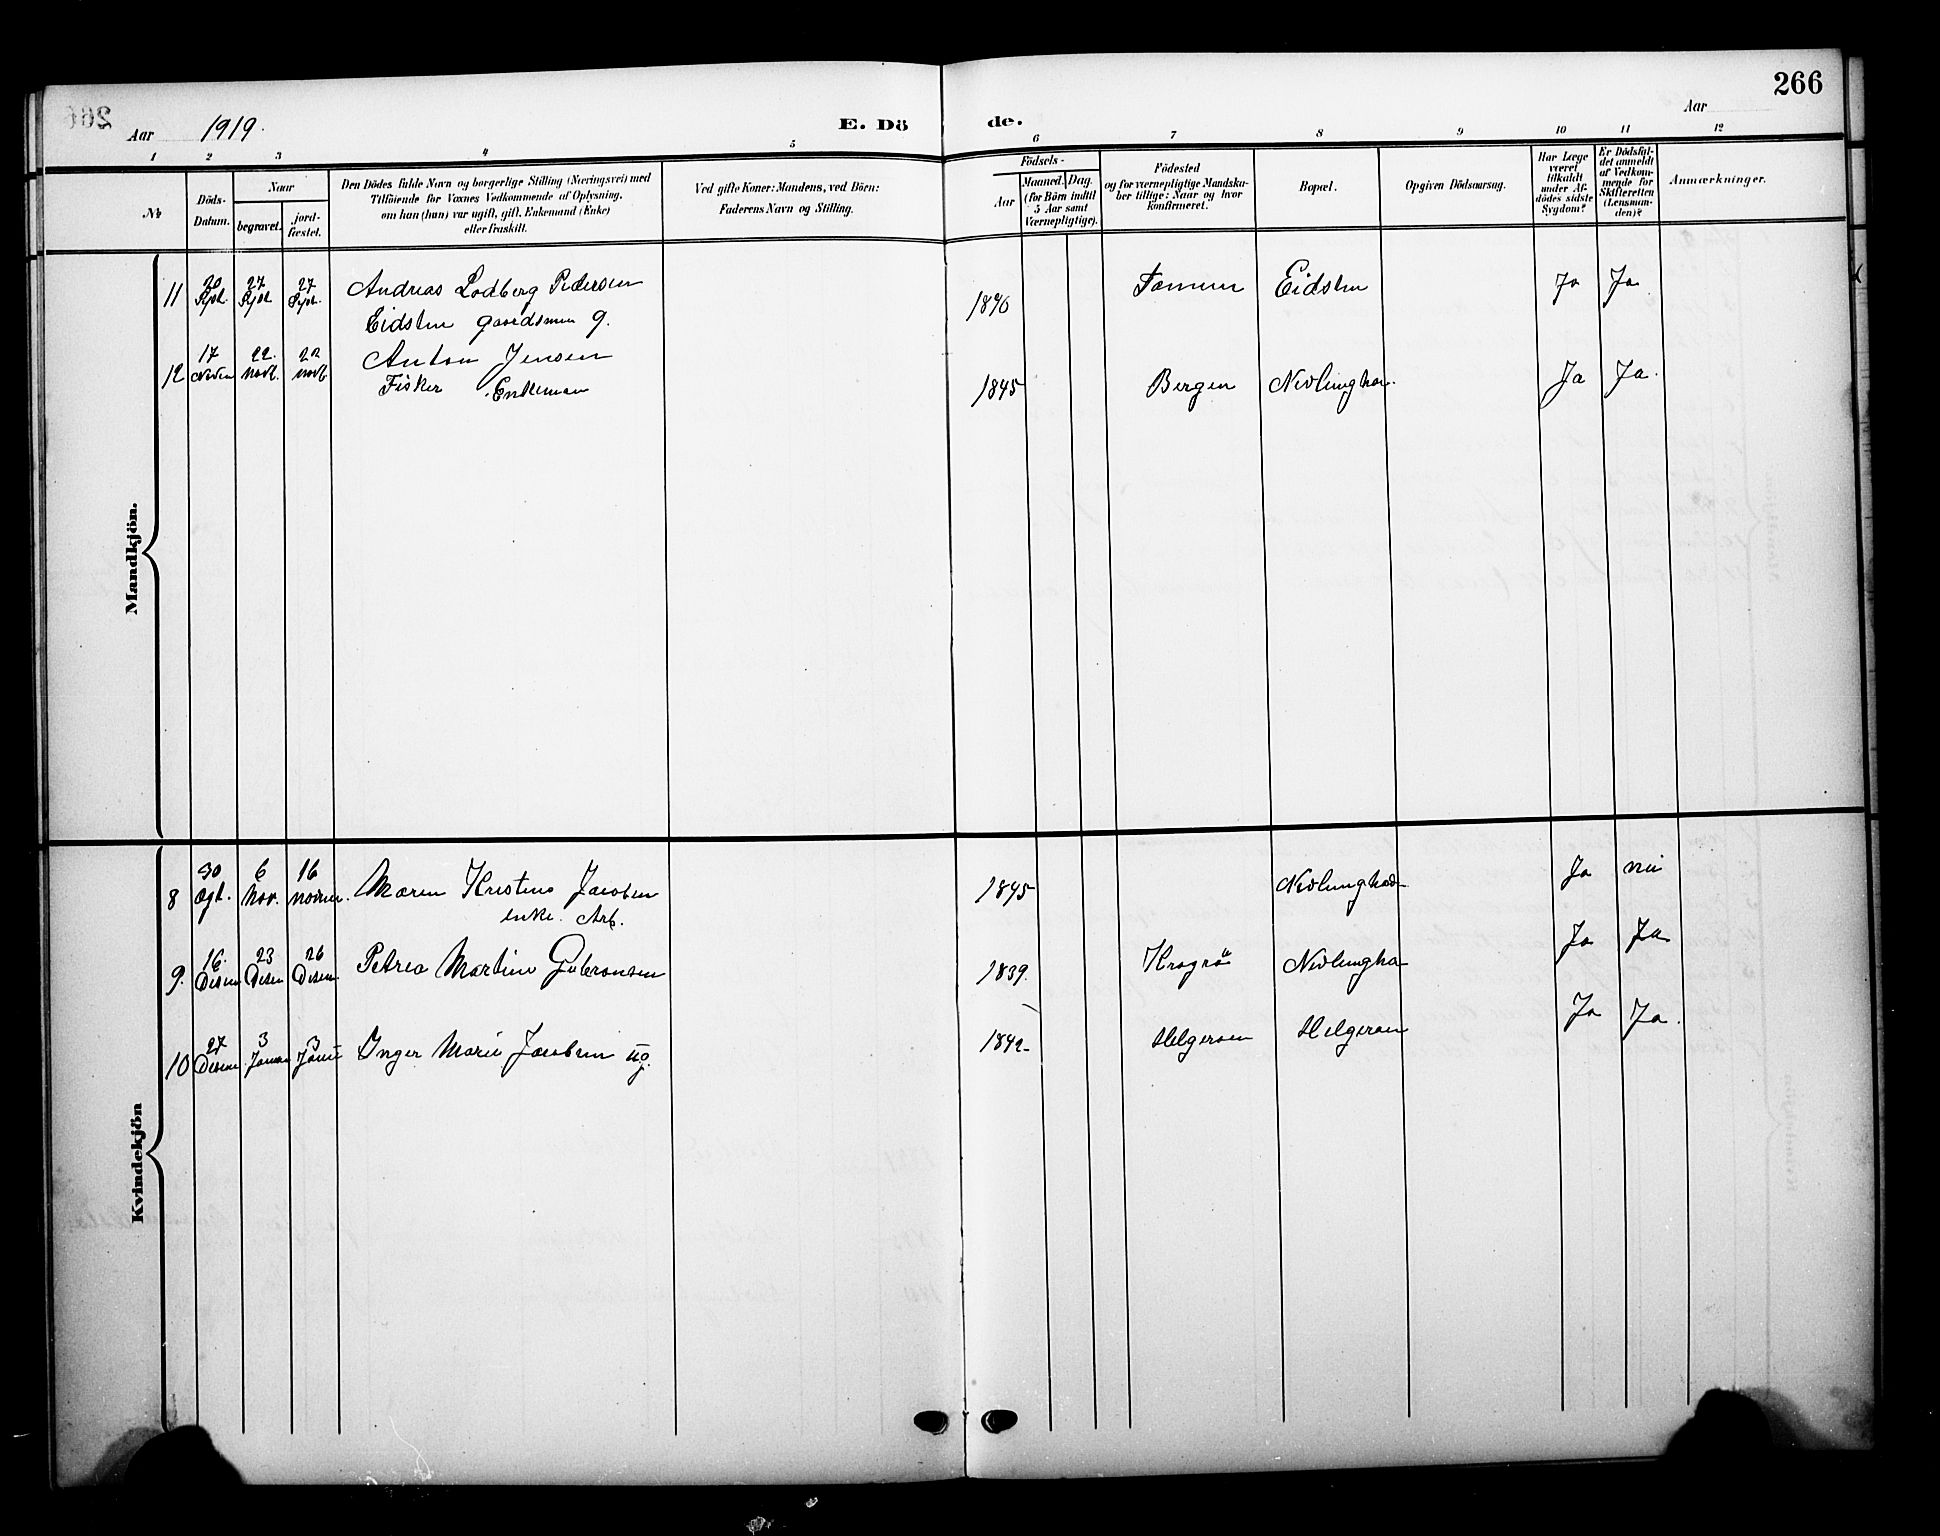 266
Aar 1919.
E. Dö de.
Aar
1 2 3 4 5 6 7 8 9 10 11 12
№
Döds-
Datum.
Naar
begravet.
jord-
fæstet.
Den Dödes fulde Navn og borgerlige Stilling (Næringsvei) med
Tilföiende for Voxnes Vedkommende af Oplysning,
om han (hun) var ugift, gift, Enkemand (Enke)
eller fraskilt.
Ved gifte Koner: Mandens, ved Börn:
Faderens Navn og Stilling.
Födsels-
Aar
Maaned. Dag.
(for Börn indtil
5 Aar samt
Værnepligtige).
Födested
og for værnepligtige Mandska-
ber tillige: Naar og hvor
konfirmeret.
Bopæl.
Opgiven Dödsaarsag.
Har Læge
været
tilkaldt
under Af-
dödes sidste
Sygdom?
Er Dödsfal-
det anmeldt
af Vedkom-
mende for
Skifteretten
(Lensman-
den)?
Anmærkninger.
Mandkjön.
11 20 Sept. 27 Sept 27 Sept. Andreas Lodberg Pedersen Eidsten Ja Ja
Eidsten gaardsmen g.
12 17 22 novb. 22 novb Anton Jensen 1845 Bergen Nevlungha. Ja Ja.
Fisker Enkeman
Kvindekjön
8 30 6 Nov. 16 Maren Kristine Jacobsen 1845 Nevlunghavn Ja nei
enke. Arb.
9. 16. Desem 23 Desem 26 Desem Petrea Martine 1839. Kragrö Nevlungha Ja Ja
10 27 Desem 3 3 Inger Marie Jacobsen ug. 1842 Helgeroen Helgeroen Ja Ja.